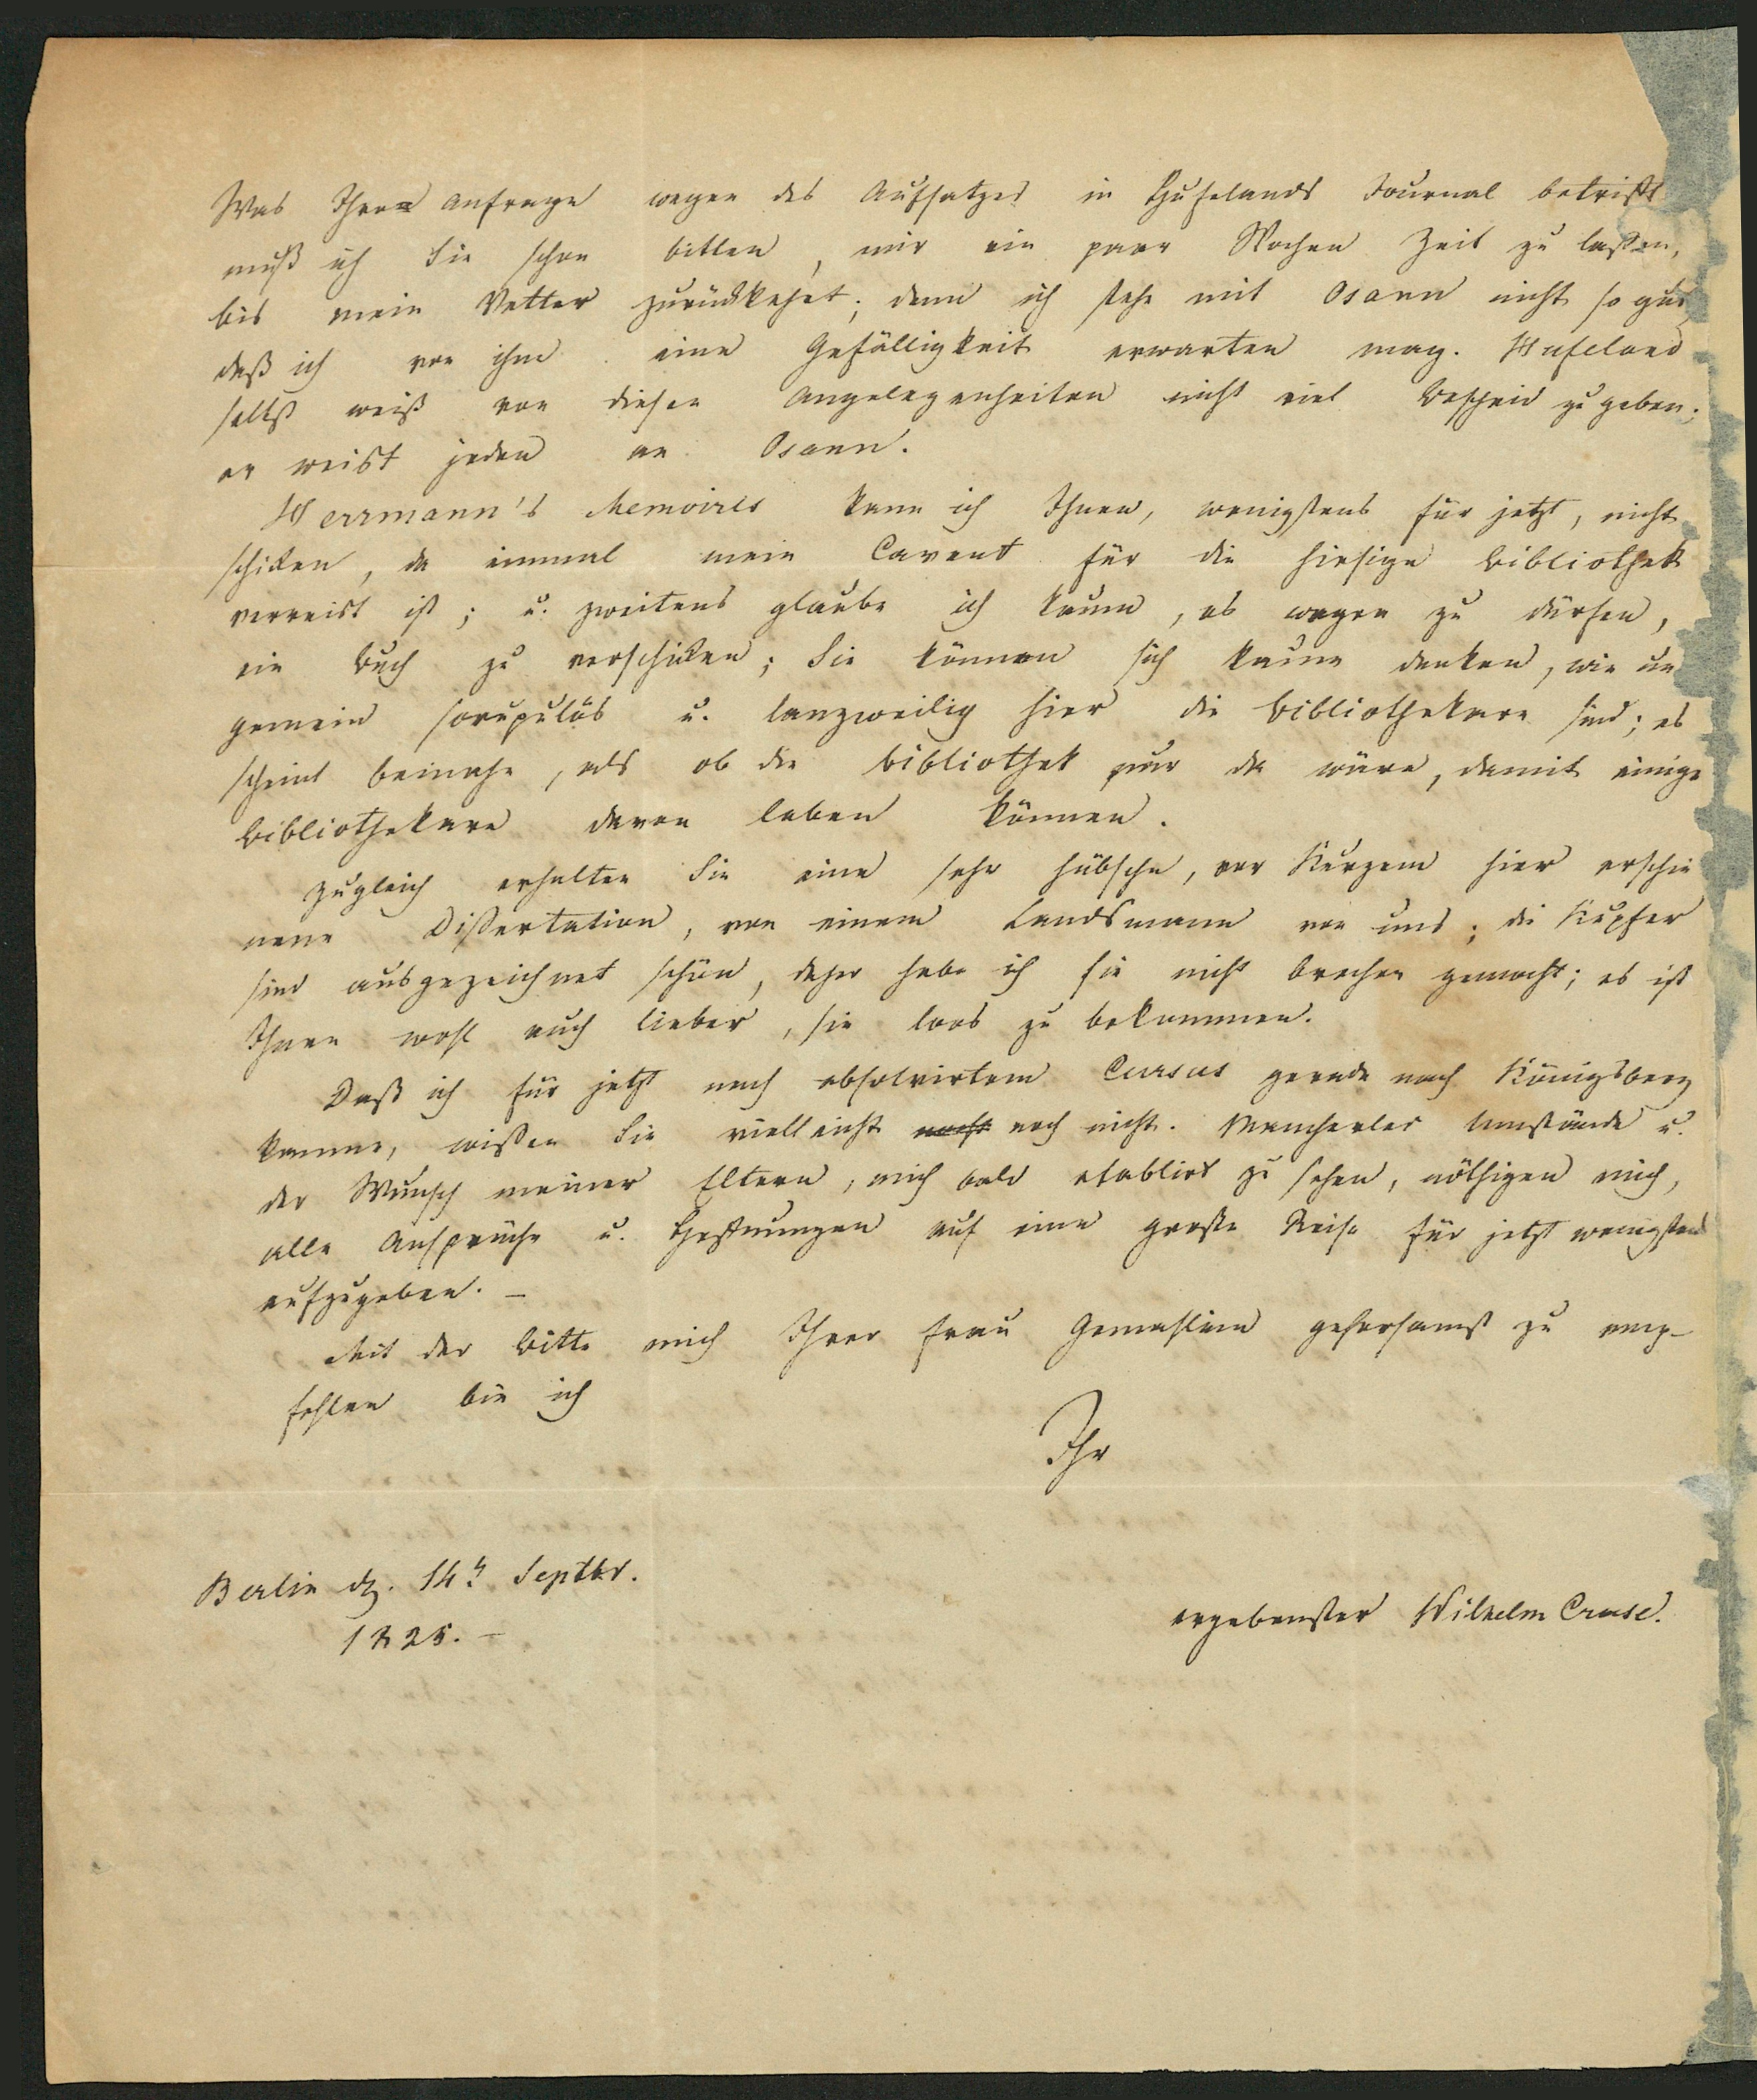 Was Ihre Anfrage wegen des Aufsatzes in Hufelands Journal betrifft
muß ich Sie schon bitten, mir ein paar Wochen Zeit zu laßen,
bis mein Vetter zurückkehrt; denn ich stehe mit Osann nicht so gut,
daß ich von ihm eine Gefälligkeit erwarten mag. Hufeland
selbst weiß von diesen Angelegenheiten nicht viel Bescheid zu geben;
er weist jeden an Osann.
Herrmann's Memoires kann ich Ihnen, wenigstens für jetzt, nicht
schicken, da einmal mein Cavent für die hiesige Bibliothek
verreist ist; u. zweitens glaube ich kaum, es wagen zu dürfen,
ein Buch zu verschicken; Sie können sich kaum denken, wie un
gemein scrupulös u. langweilig hier die Bibliothekare sind; es
scheint beinahe, als ob die Bibliothek nur da wäre, damit einige
Bibliothekare davon leben können.
Zugleich erhalten Sie eine sehr hübsche, vor Kurzem hier erschie
nene Dißertation, von einem Landsmann von uns; die Kupfer
sind ausgezeichnet schön, daher habe ich sie nicht brechen gemocht; es ist
Ihnen wohl auch lieber, sie loos zu bekommen.
Daß ich für jetzt nach absolvirtem Cursus gerade nach Königsberg
komme, wißen Sie vielleicht noch nicht. Mancherlei Umstände u.
der Wunsch meiner Eltern, mich bald etablirt zu sehen, nöthigen mich,
alle Ansprüche u. Hoffnungen auf eine große Reise für jetzt wenigstens
aufzugeben. –
Mit der Bitte mich Ihrer Frau Gemahlinn gehorsamst zu emp-
fehlen bin ich
Ihr
Berlin d. 14t Septbr.
1825. –
ergebenster Wilhelm Cruse.